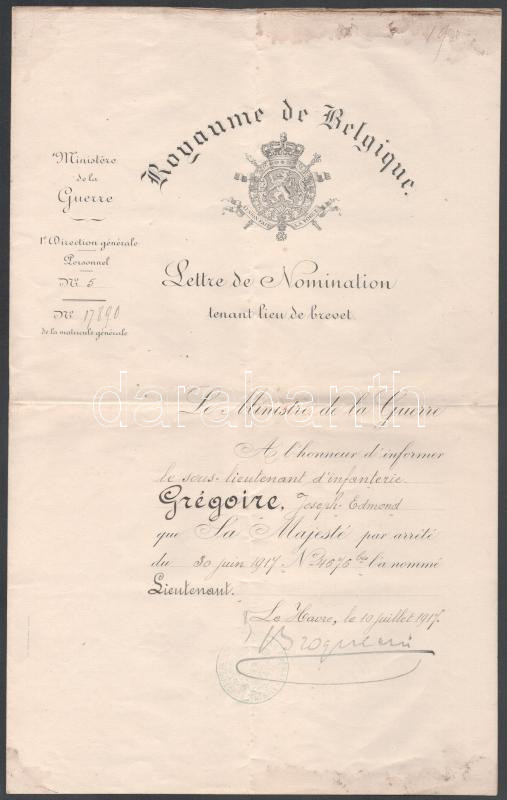 Royaume de Belgique.
Ministère
de la
Guerre
1e Direction générale
Personnel
No. 5
No. 17890
de la matricule générale
L'UNION FAIT LA FORCE
Lettre de Nomination
tenant lieu de brevet
darabanth
Le Ministre de la Guerre
A l'honneur d'informer
le sous-lieutenant d'infanterie
Grégoire, Joseph Edmond
que Sa Majesté par arrêté
du 30 juin 1917 No 4676 bis l'a nommé
Lieutenant.
Le Havre, le 10 juillet 1917.